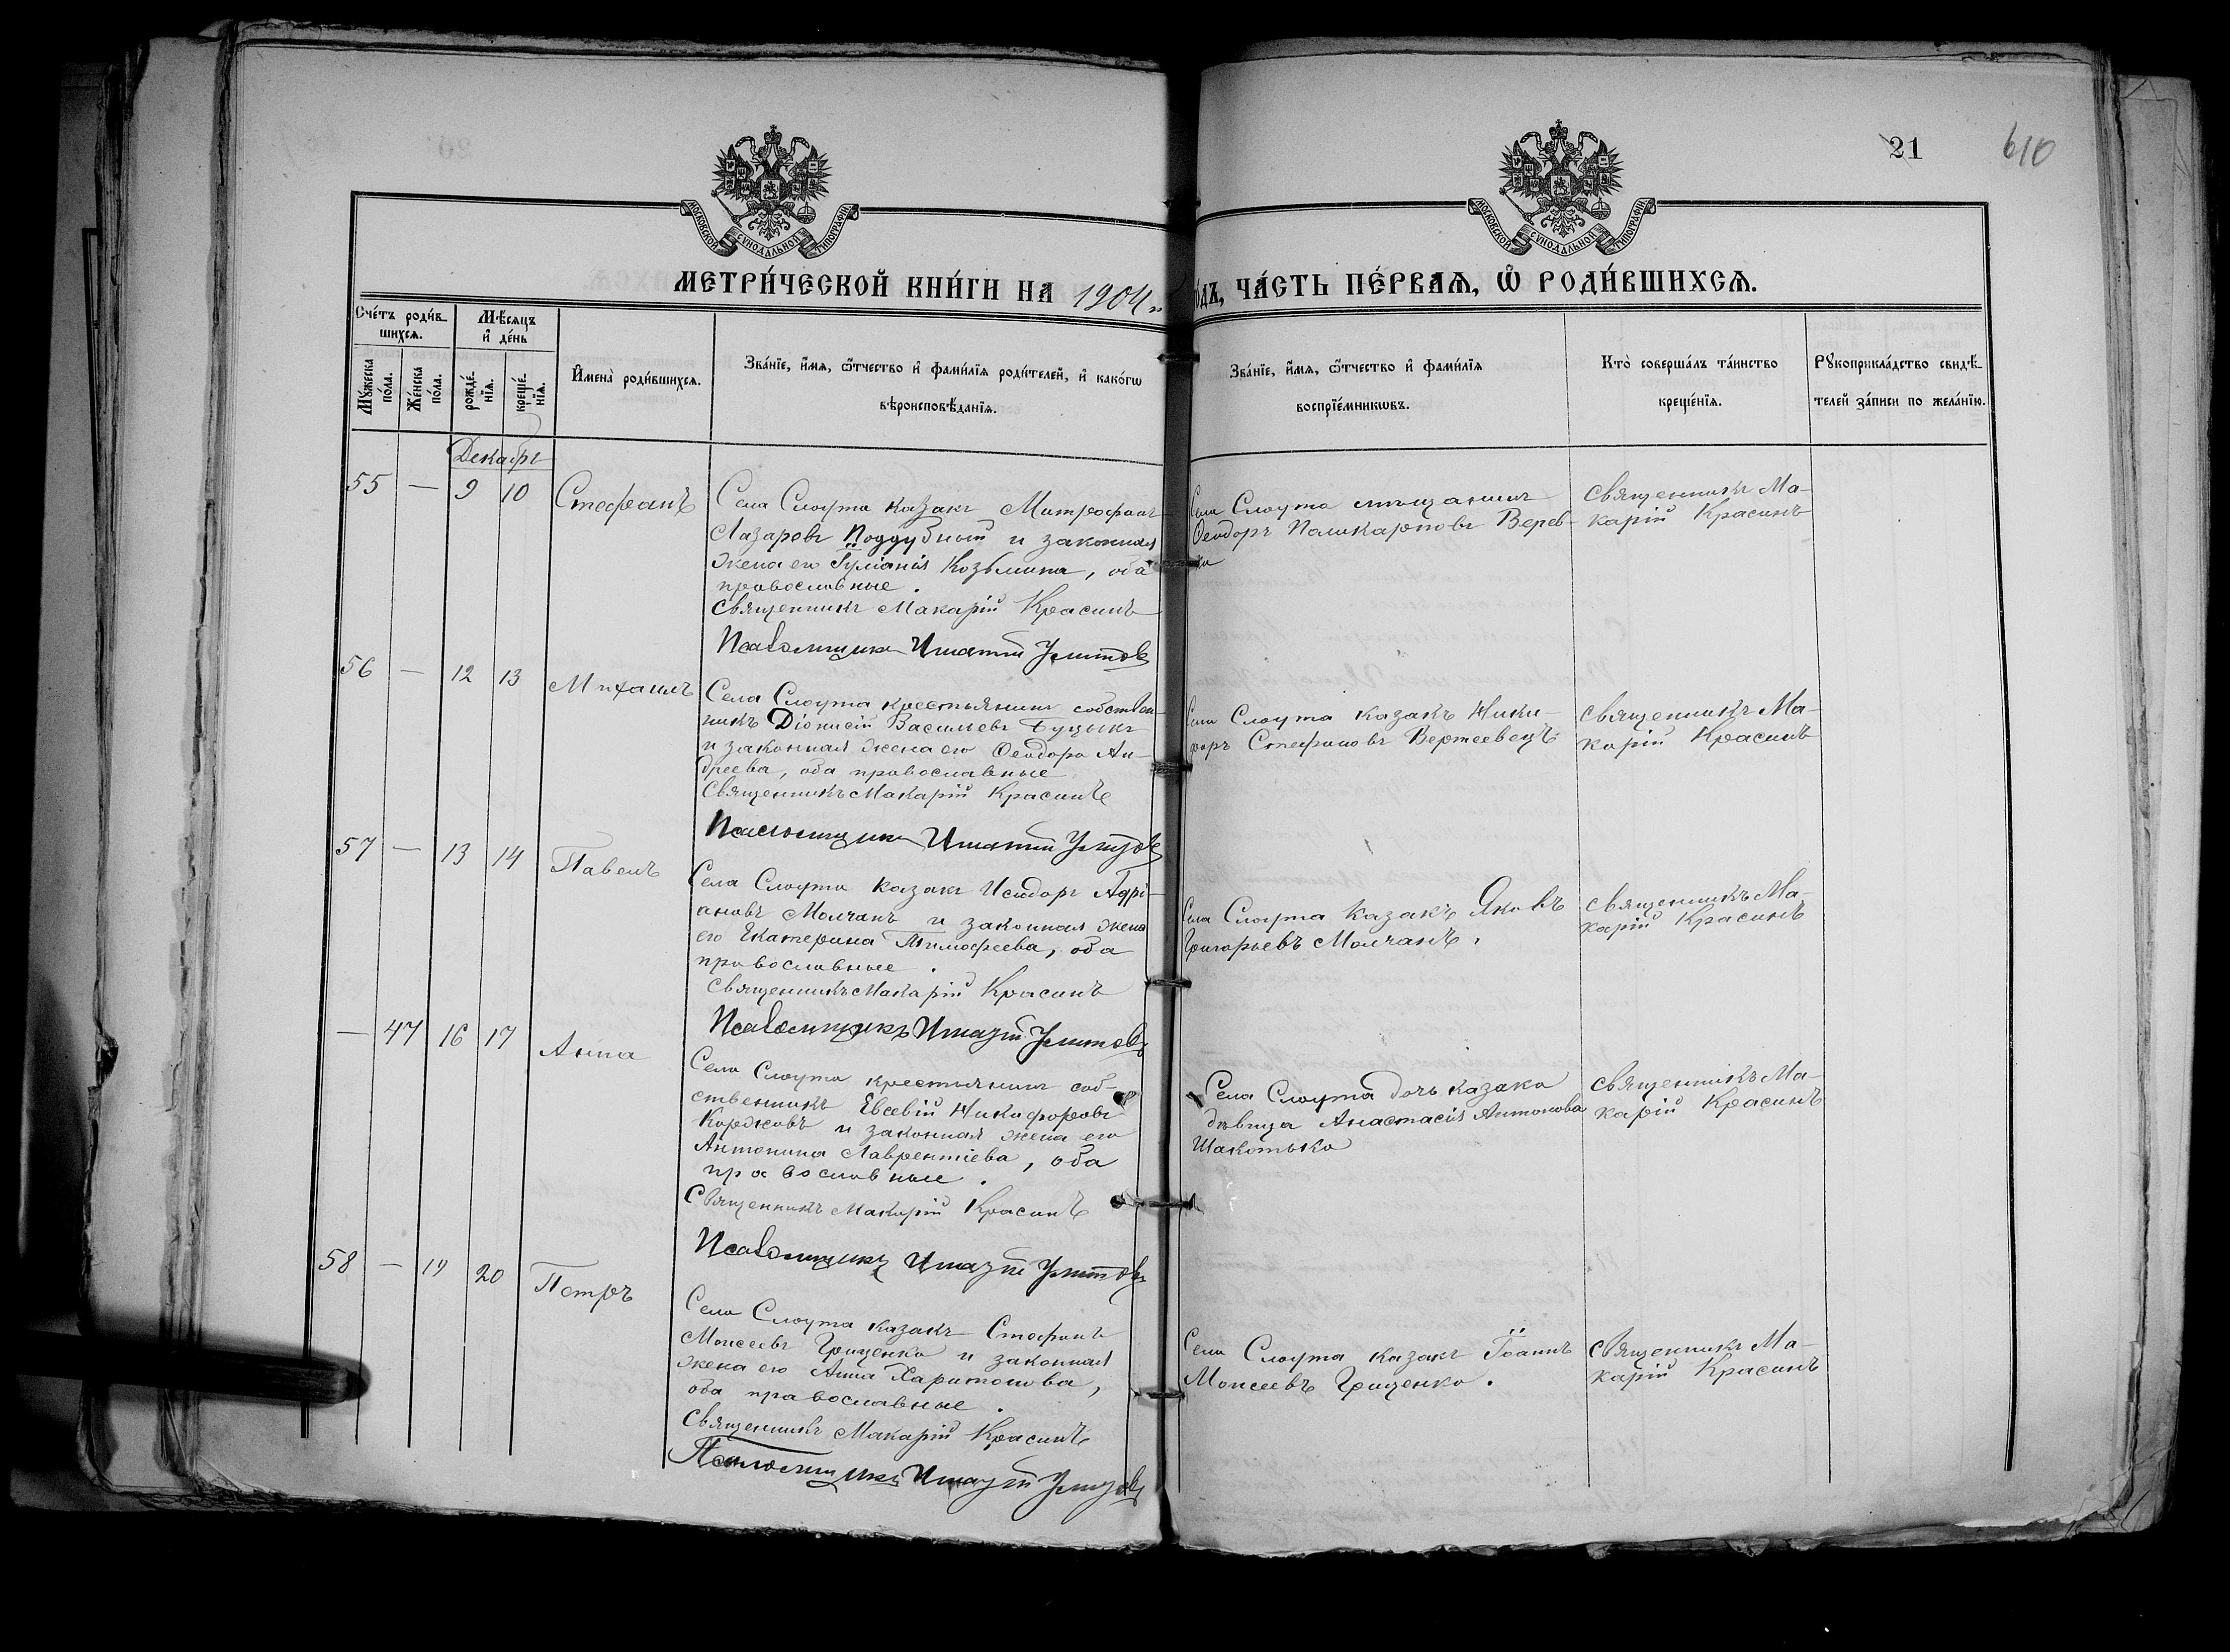 21
610
МОСКОВСКОЙ СѴНОДАЛЬНОЙ ТИПОГРАФІИ
МОСКОВСКОЙ СѴНОДАЛЬНОЙ ТИПОГРАФІИ
МЕТРИ́ЧЕСКОЙ КНИ́ГИ НА 1904 й
го́дъ, ча́сть пе́рваѧ, ѡ҆ роди́вшихсѧ.
Сче́тъ роди́в-
шихсѧ.
Мꙋ́жеска по́ла.
Же́нска по́ла.
Мѣ́сѧцъ
и҆ де́нь
рожде́-
нїѧ.
креще́-
нїѧ.
И҆мена̀ роди́вшихсѧ.
Зва́нїе, и҆́мѧ, ѻ҆́тчество и҆ фамн́лїѧ роди́телей, и҆ како́гѡ
вѣроисповѣ́данїѧ.
Зва́нїе, и҆́мѧ, ѻ҆́тчество и҆ фами́лїѧ
воспрїе́мникѡвъ.
Кто̀ соверша́лъ та́инство
креще́нїѧ.
Рꙋкоприкла́дство свидѣ́-
телей за́писи по жела́нїю.
Декабрь
55 — 9 10 Стефанъ
Села Слоута казакъ Митрофанъ
Лазаровъ Поддубный и законная
жена его Іуліанія Козьмина, оба
православные.
Священникъ Макарій Красинъ
Псаломщикъ Игнатій
Села Слоута мѣщанинъ
Ѳеодоръ Поликарповъ Верев-
ка
Священникъ Ма-
карій Красинъ
56 — 12 13 Михаилъ
Села Слоута крестьянинъ собствен-
никъ Діонисій Васильевъ Буцыкъ
и законная жена его Ѳеодора Ан-
дреева, оба православные
Священникъ Макарій Красинъ
Псаломщикъ Игнатій
Села Слоута казакъ Ники-
форъ Стефановъ Вертеевецъ
Священникъ Ма-
карій Красинъ
57 — 13 14 Павелъ
Села Слоута казакъ Исидоръ Адрі-
ановъ Молчанъ и законная жена
его Екатерина Тимофеева, оба
православные.
Священникъ Макарій Красинъ
Псаломщикъ Игнатій
Села Слоута казакъ Яковъ
Григорьевъ Молчанъ.
Священникъ Ма-
карій Красинъ
— 47 16 17 Анна
Села Слоута крестьянинъ соб-
ственникъ Евсевій Никифоровъ
Коржовъ и законная жена его
Антонина Лаврентіева, оба
православные.
Священникъ Макарій Красинъ
Псаломщикъ Игнатій
Села Слоута дочь казака
дѣвица Анастасія Антонова
Шакотько
Священникъ Ма-
карій Красинъ
58 — 19 20 Петръ
Села Слоута казакъ Стефанъ
Моисеевъ Грищенко и законная
жена его Анна Харитонова,
оба православные.
Священникъ Макарій Красинъ
Псаломщикъ Игнатій
Села Слоута казакъ Іоаннъ
Моисеевъ Грищенко.
Священникъ Ма-
карій Красинъ